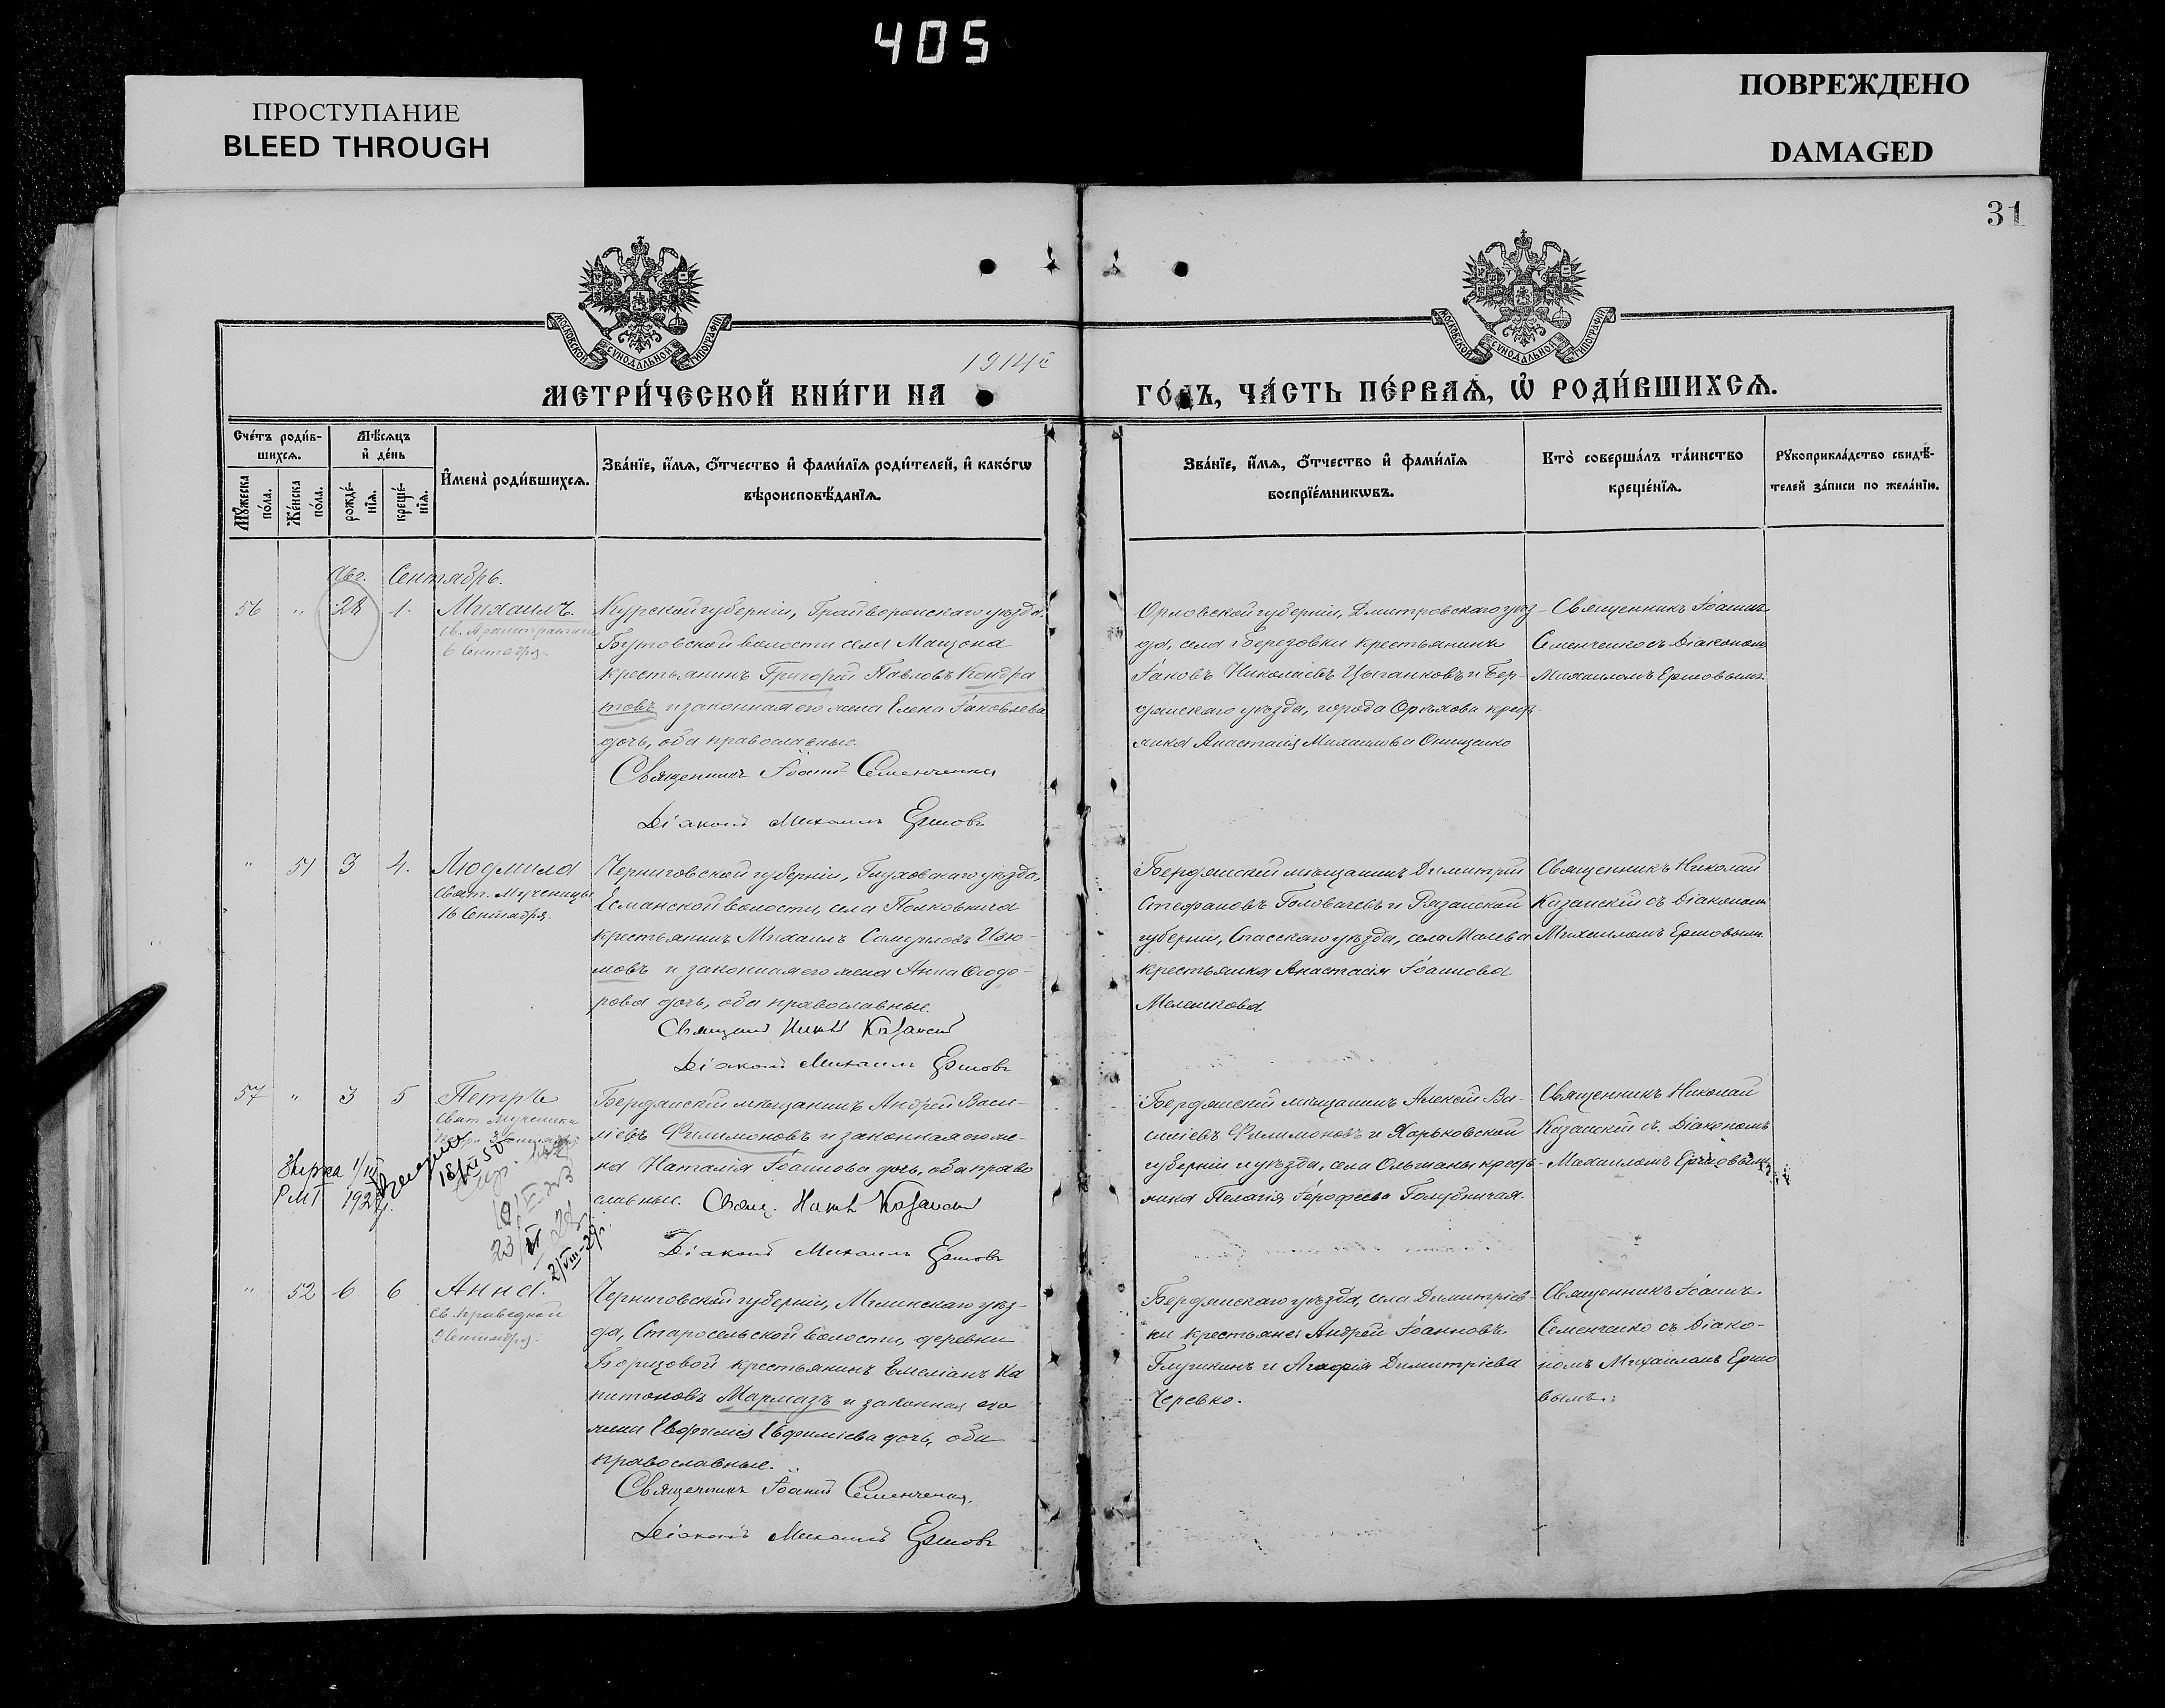 405
ПРОСТУПАНИЕ
BLEED THROUGH
ПОВРЕЖДЕНО
DAMAGED
31
МОСКОВСКОЙ СѴНОДАЛЬНОЙ ТИПОГРАФІИ
МОСКОВСКОЙ СѴНОДАЛЬНОЙ ТИПОГРАФІИ
1914
МЕТРИ́ЧЕСКОЙ КНИ́ГИ НА
ГО́ДЪ, ЧА́СТЬ ПЕ́РВАѦ, Ѡ҆ РОДИ́ВШИХСѦ.
Сче́тъ роди́в-
шихсѧ.
Мꙋ́жеска по́ла.
Же́нска по́ла.
Мѣ́сѧцъ и҆ де́нь
рожде́-нїѧ.
креще́-нїѧ.
И҆мена̀ роди́вшихсѧ.
Зва́нїе, и҆́мѧ, ѻ҆́тчество и҆ фами́лїѧ роди́телей, и҆ како́гѡ
вѣроисповѣ́данїѧ.
Зва́нїе, и҆́мѧ, ѻ҆́тчество и҆ фами́лїѧ
воспрїе́мникѡвъ.
Кто̀ соверша́лъ та́инство
креще́нїѧ.
Рꙋкоприкла́дство свидѣ́-
телей за́писи по жела́нїю.
Авг. Сентябрь.
56 " 28 1. Михаилъ.
6 Сентября.
Курской губерніи, Грайворонскаго уѣзда,
Бутовской волости села
крестьянинъ Григорій Павловъ Кондра
товъ и законная его жена Елена Іаковлева
дочь, оба православные.
Священникъ Іоаннъ Семенченко
Діаконъ Михаилъ Ершовъ
Орловской губерніи, Дмитровскаго уѣз-
да, села Березовки крестьянинъ
Іаковъ Николаевъ Цыганковъ и Бер-
дянскаго уѣзда, города Орѣхова крест-
янка Анастасія Михаилова Онищенко
Священникъ Іоаннъ
Семенченко съ Діакономъ
Михаиломъ Ершовымъ.
" 51 3 4. Людмила
Свят. Мученицы
16 Сентября.
Черниговской губерніи, Глуховскаго уѣзда,
Есманской волости, села
крестьянинъ Михаилъ Самуиловъ Изю-
мовъ и законная его жена Анна Ѳеодо-
рова дочь, оба православные.
Священникъ Казанскій
Діаконъ Михаилъ Ершовъ
Бердянскій мѣщанинъ Димитрій
Стефановъ Головачевъ и Рязанской
губерніи, Спасскаго уѣзда, села
крестьянка Анастасія Іоаннова
Меленкова
Священникъ Николай
Казанскій съ Діакономъ
Михаиломъ Ершовымъ.
57 " 3 5 Петръ
Свят Мученика
Бердянскій мѣщанинъ Андрей Васи-
ліевъ Филимоновъ и законная его же-
на Наталія Іоаннова дочь, оба право
славные. Свящ. Казанскій
Діаконъ Михаилъ Ершовъ
Бердянскій мѣщанинъ Алексѣй Ва-
силіевъ Филимоновъ и Харьковской
губерніи и уѣзда, села Ольшаны крестъ-
янка Пелагія Іерофеева Голубничая.
Священникъ Николай
Казанскій съ Діакономъ
Михаиломъ Ершовымъ
" 52 6 6 Анна.
Св. праведной
9 Сентября.
Черниговской губерніи, Мглинскаго уѣз-
да, Старосельской волости, деревни
крестьянинъ Емеліанъ Ка
питоновъ Мармазъ и законная его
жена Евфимія Евфиміева дочь, оба
православные.
Священникъ Іоаннъ Семенченко.
Діаконъ Михаилъ Ершовъ
Бердянскаго уѣзда, села Димитріев-
ки крестьяне: Андрей Іоанновъ
Глушкинъ и Агафія Димитріева
Черевко.
Священникъ Іоаннъ
Семенченко съ Діако-
номъ Михаиломъ Ершо
вымъ.